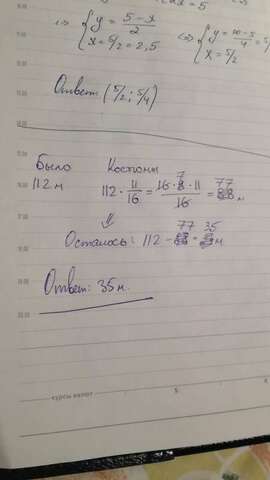 =5
1) { y = 5-x/2 (=) { y = 10-5/4 = 5/
x = 5/2 = 2,5 x = 5/2
Ответ: (5/2; 5/4)
Было Костюмы
112 м 112 · 11/16 = 16 · 7 · 11/16 = 77 м
⇓
Осталось: 112 - 77 = 35 м
Ответ: 35 м.
курсы валют